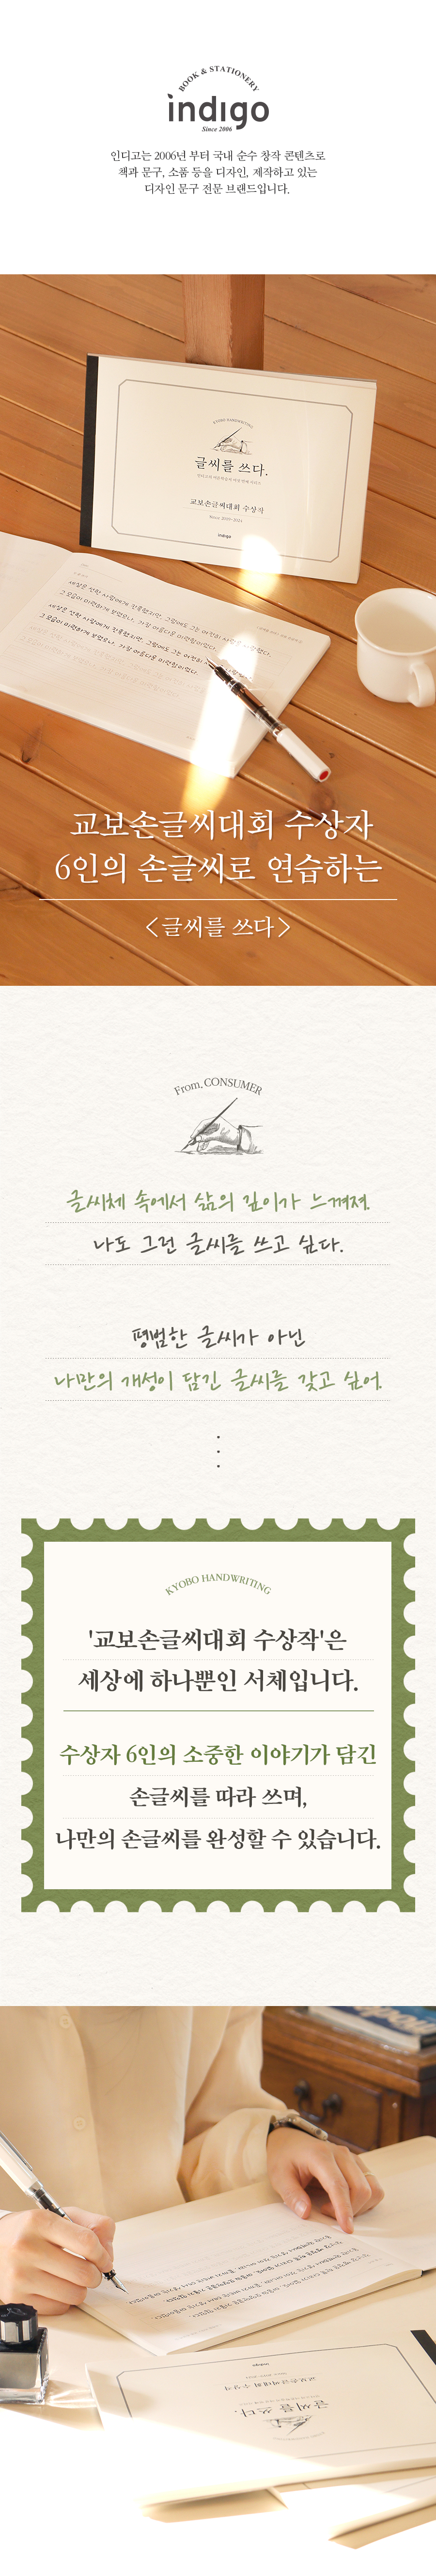 BOOK & STATIONERY
indigo
Since 2006
인디고는 2006년 부터 국내 순수 창작 콘텐츠로
책과 문구, 소품 등을 디자인, 제작하고 있는
디자인 문구 전문 브랜드입니다.
KYOBO HANDWRITING
글씨를 쓰다.
교보손글씨대회 수상작
indigo
교보손글씨대회 수상자
6인의 손글씨로 연습하는
<글씨를 쓰다>
From. CONSUMER
글씨체 속에서 삶의 깊이가 느껴져.
나도 그런 글씨를 쓰고 싶다.
평범한 글씨가 아닌
나만의 개성이 담긴 글씨를 갖고 싶어.
KYOBO HANDWRITING
'교보손글씨대회 수상작'은
세상에 하나뿐인 서체입니다.
수상자 6인의 소중한 이야기가 담긴
손글씨를 따라 쓰며,
나만의 손글씨를 완성할 수 있습니다.
indigo
교보손글씨대회 수상작
글씨를 쓰다.